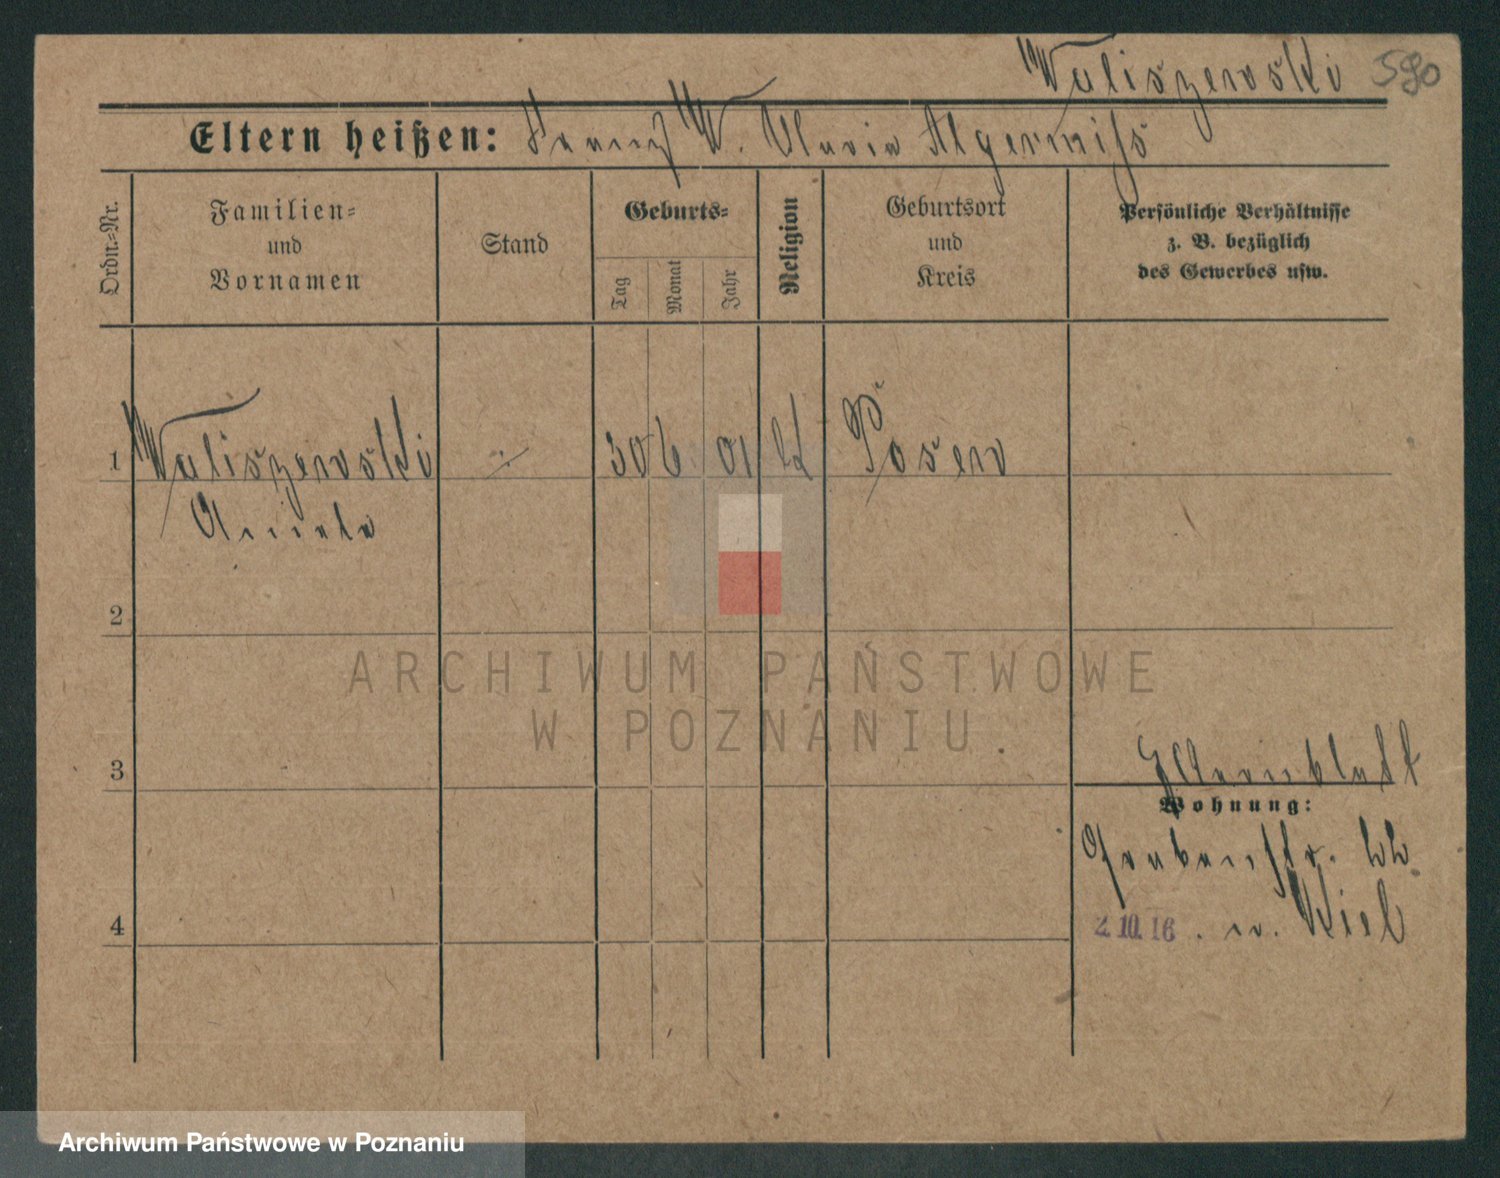 Waliszewski 590
Eltern heißen: Franz W. Maria Algermiß
Ordn.=Nr.
Familien=
und
Vornamen
Stand
Geburts=
Tag
Monat
Jahr
Religion
Geburtsort
und
Kreis
Persönliche Verhältnisse
z. B. bezüglich
des Gewerbes usw.
1 Waliszewski ./. 30 6. 01 K Posen
Aniela
2
ARCHIWUM PAŃSTWOWE
W POZNANIU
3
Elternblatt
Wohnung:
Grabenstr. 22
4
2.10.16. n. Kiel
Archiwum Państwowe w Poznaniu